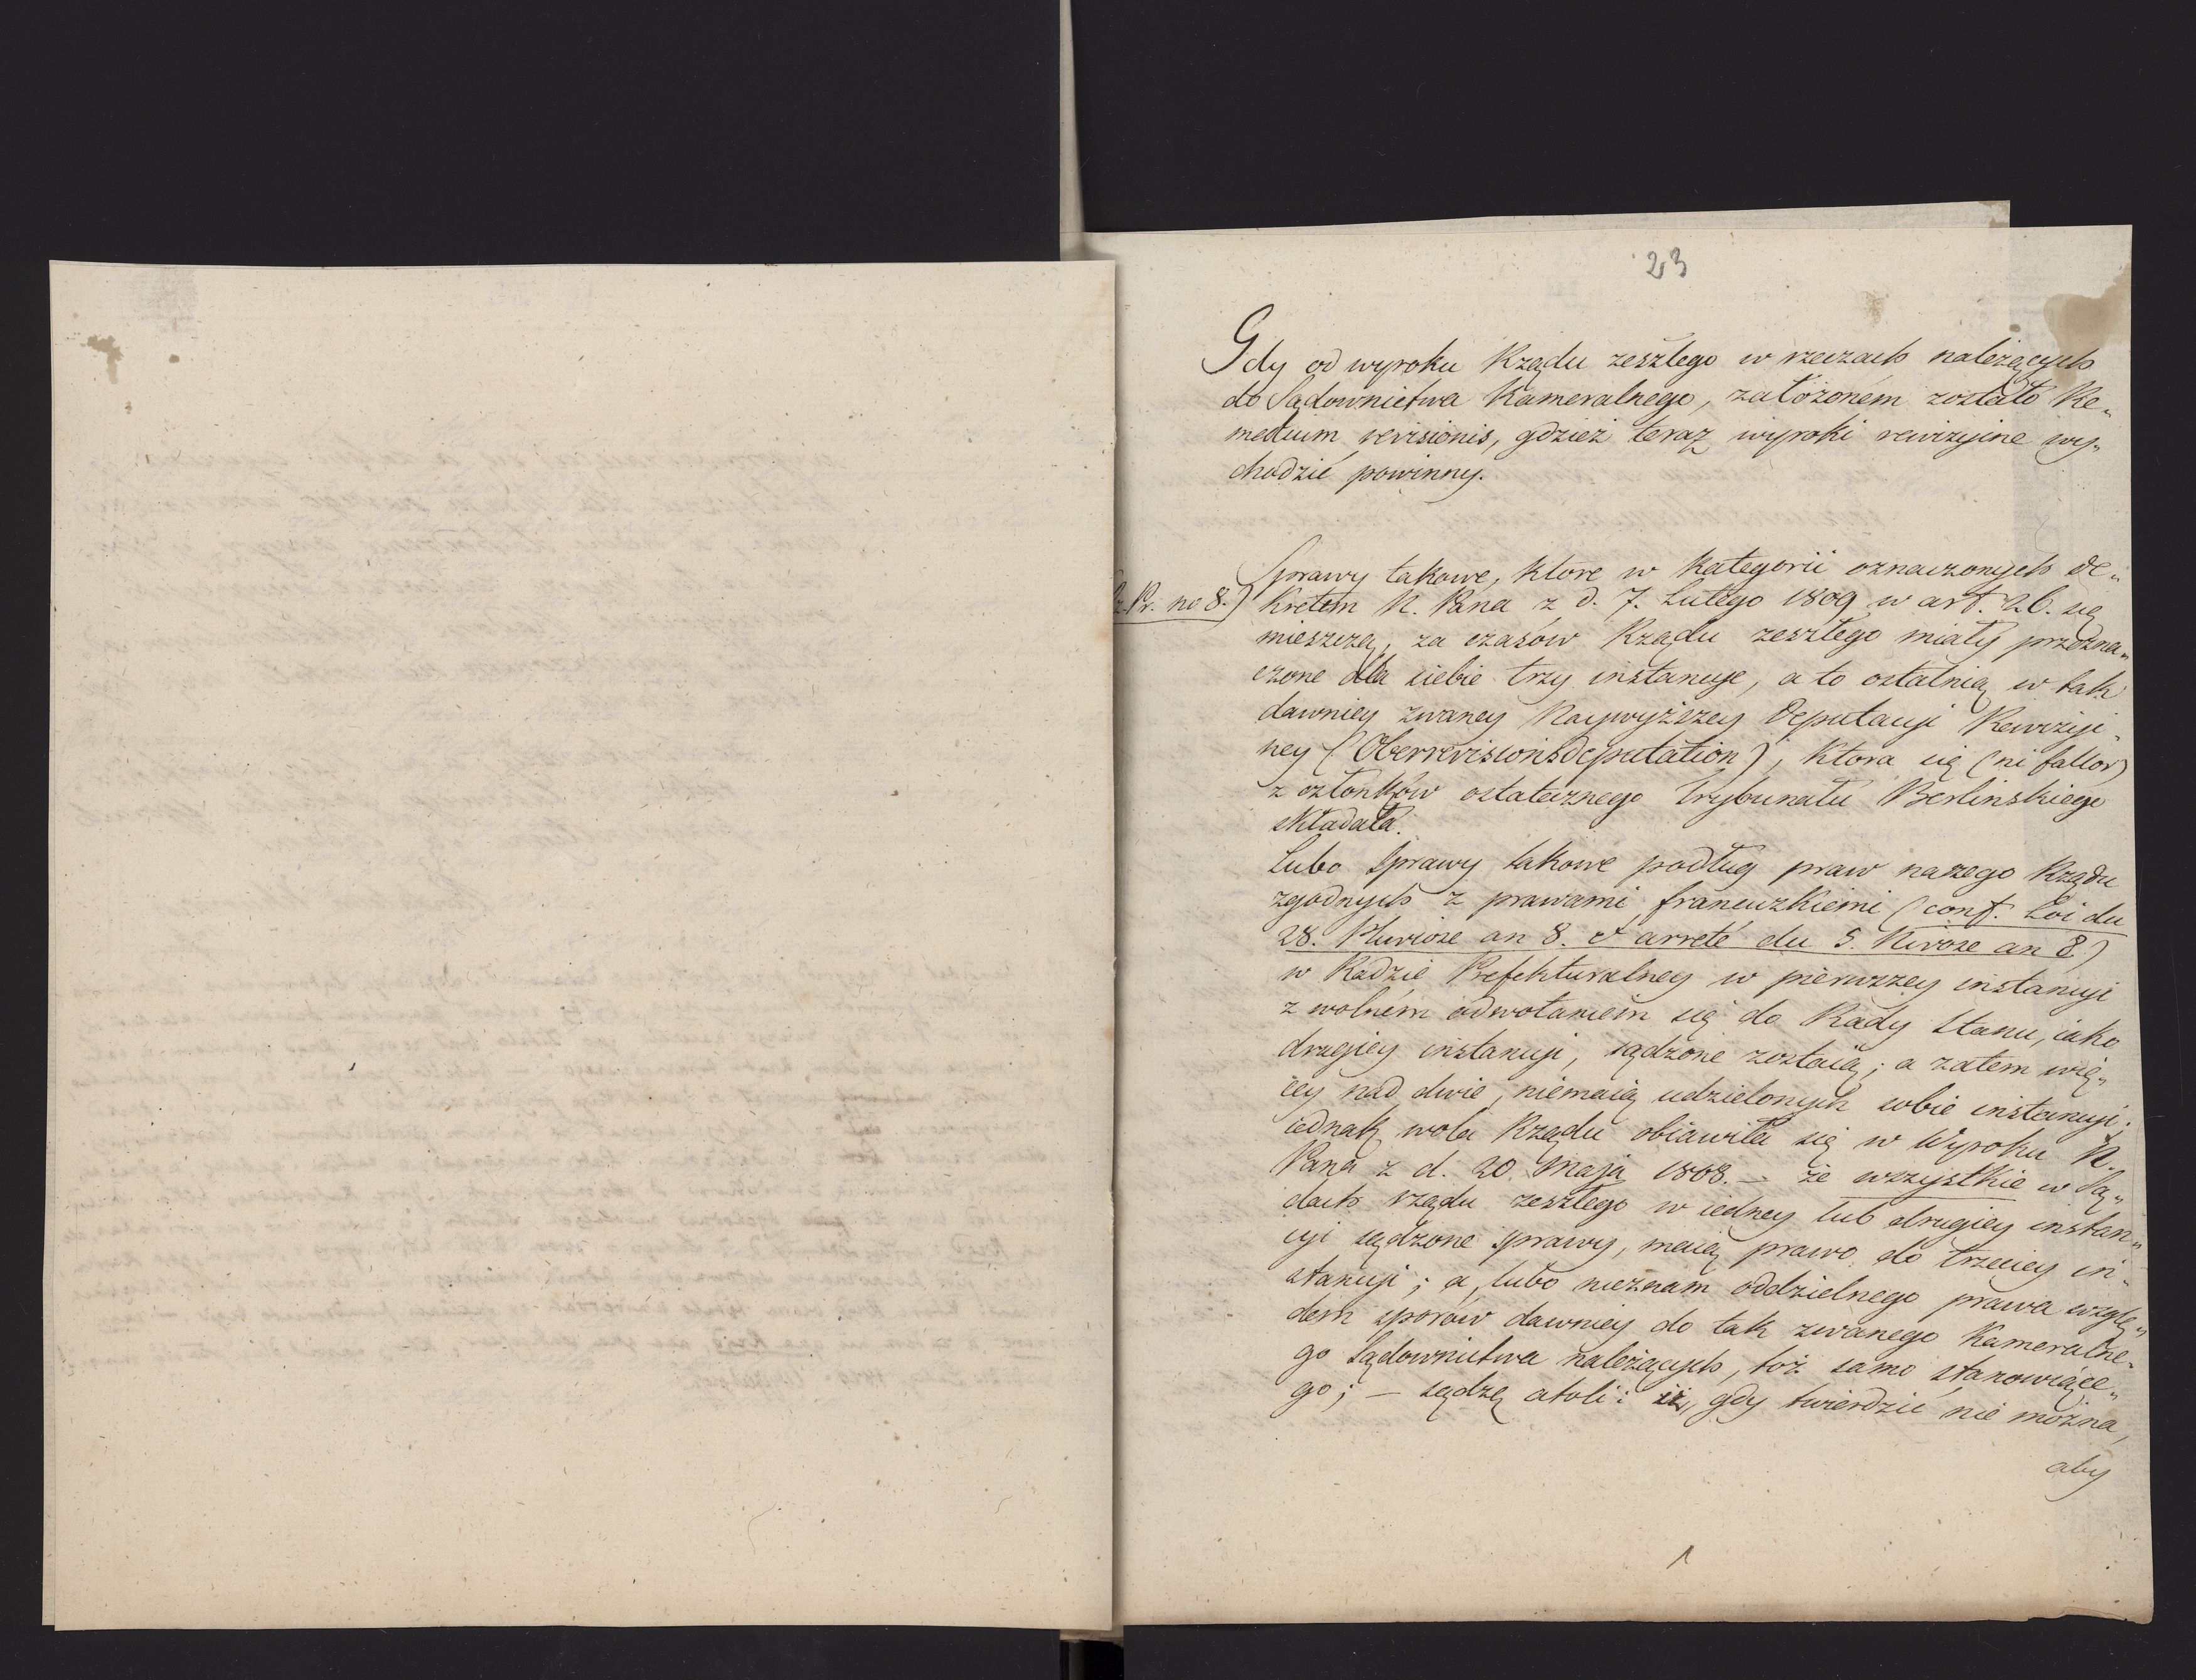 23
Gdy od wyroku Rządu zeszłego w rzeczach należących
do Sądownictwa Kameralnego, założoném zostało Re„
medium revisionis, gdzież teraz wyroki rewizyine wy„
chodzić powinny.
Sprawy takowe, ktore w Kategorii oznaczonych de„
Pr. no 8.) kretem N. Pana z d. 7. Lutego 1809 w art. 26. się
mieszczą, za czasów Rządu zeszłego miały przezna„
czone dla siebie trzy instancye, a to ostatnią w tak
dawniey zwaney Naywyższey Deputacyi Rewizyi„
ney (Oberrevisionsdeputation), Ktora się (ni fallor)
z członków ostatecznego Trybunału Berlinskiego
składała.
Lubo Sprawy takowe podług praw naszego Rządu
zgodnych z prawami francuzkiemi (conf. Loi du
28. Pluviose an 8. et arreté du 5. Nivose an 8)
w Radzie Prefekturalney w pierwszey instancyi
z wolném odwołaniem się do Rady Stanu, iako
drugiey instancyi, sądzone zostaią; a zatem wię„
cey nad dwie, niemaią udzielonych sobie instancyi;
iednak wola Rządu obiawiła się w Wyroku N.
Pana z d. 20 Maja 1808. – że wszystkie w Są„
dach rządu zeszłego w iedney lub drugiey instan„
cyi sądzone sprawy, maią prawo do trzeciey in„
stancyi; a, lubo nieznam oddzielnego prawa wzglę„
dem sporów dawniey do tak zwanego Kameralne„
go Sądownictwa należących, toż samo stanowiące„
go; – sądzę atoli: iż, gdy twierdzić nie można,
aby
1